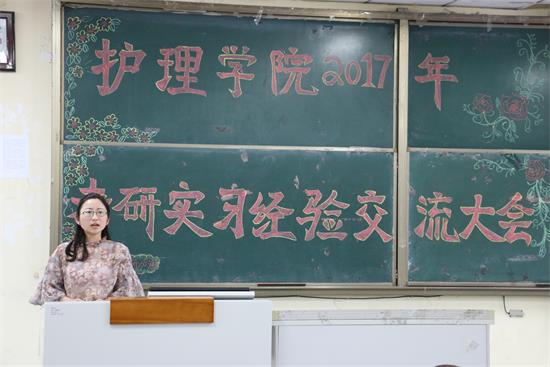 护理学院2017年
考研实习经验交流大会